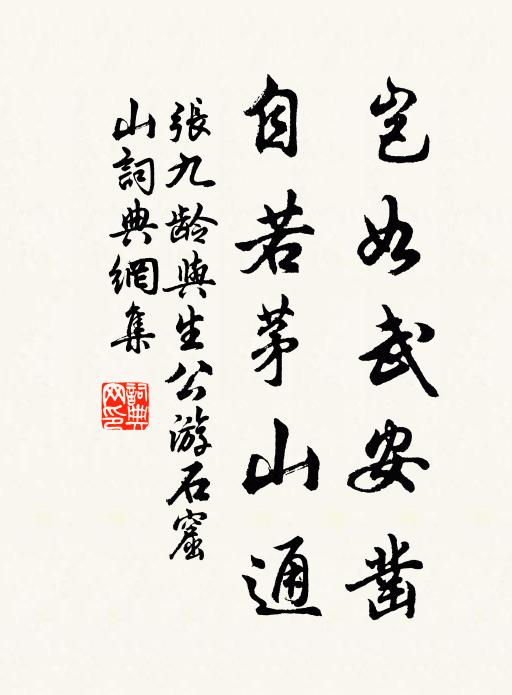 豈如武安鑿
自若茅山通
張九龄與生公游石窟
山詞典網集
詞典網印